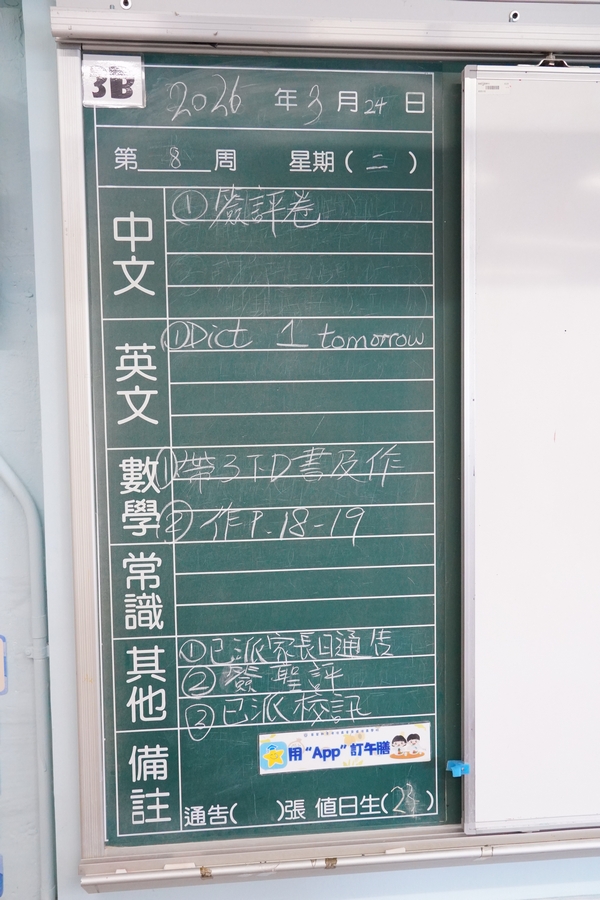 3B
2026年3月24日
第8周 星期(二)
中文
①簽評卷
英文
①Dict 1 tomorrow
數學
①帶3下D書及作
②作P.18-19
常識
其他
①已派家長日通告
②簽聖評
③已派校訊
備註
用“App”訂午膳
通告( )張 值日生( )